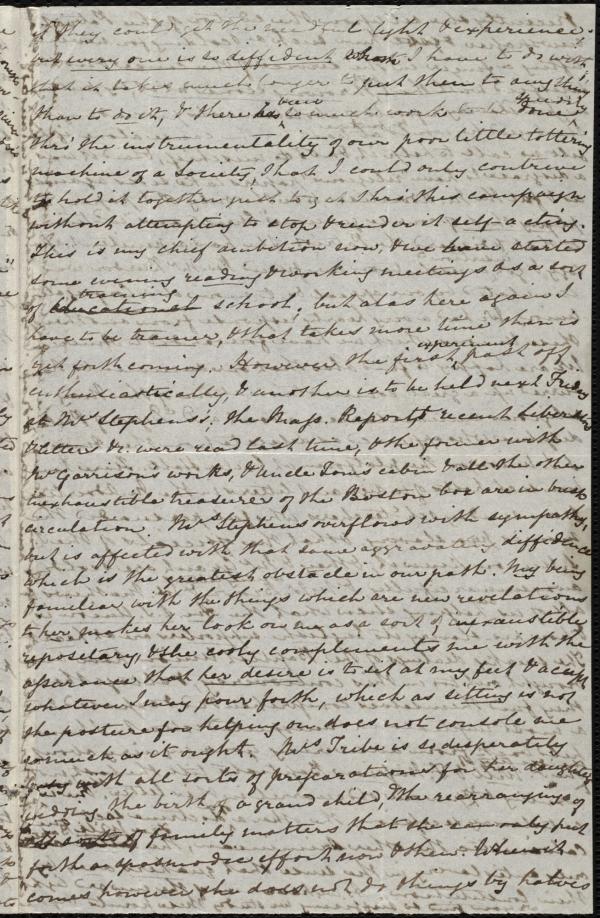 if they could get the needful light & experience.
but every one is so diffident whom I have to do with
that it takes much longer to put them to anything
than to do it, & there has been so much work to be done speedily
thro' the instrumentality of our poor little tottering
machine of a Society, that I could only contrive
to hold it together just to get thro' this campaign
without attempting to stop & render it self-acting.
This is my chief ambition now, & we have started
some evening reading & working meetings as a sort
of educational training school; but alas here again I
have to be trainer, & that takes more time than is
yet forthcoming. However the first experiment past off
enthusiastically, & another is to be held next Friday
at Mrs Stephens's. The Mass. Report, recent Liberators
& letters &c were read last time, & the former with
Mr Garrison's works, & Uncle Tom's cabin & all the other
inexhaustible treasures of the Boston box are in busy
circulation. Mrs Stephens overflows with sympathy,
but is affected with that same aggravating diffidence
which is the greatest obstacle in our path. My being
familiar with the things which are new revelations
to her, makes her look on me as a sort of inexaustible
repositary, & she cooly compliments me with the
assurance that her desire is to sit at my feet & accept
whatever I may pour forth, which as sitting is not
the posture for helping on does not console me
so much as it ought. Mrs Tribe is so desperately
busy with all sorts of preparations for her daughter's
wedding, the birth of a grand child, & the rearranging of
family matters that she can only put
forth a spasmodic effort now & then. When it
comes however she does not do things by halves